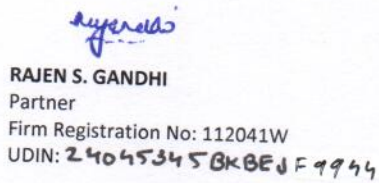 RAJEN S. GANDHI
Partner
Firm Registration No: 112041W
UDIN: 24045345BKBEJF9944